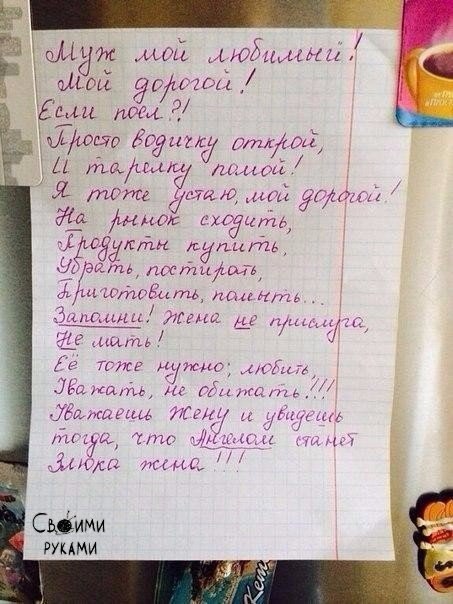 Муж мой любимый!
Мой дорогой!
Если поел?!
Просто водичку открой,
И тарелку помой!
Я тоже устаю, мой дорогой!
На рынок сходить,
Продукты купить,
Убрать, постирать,
Приготовить, помыть...
Запомни! Жена не прислуга,
Не мать!
Её тоже нужно; любить,
Уважать, не обижать!!!
Уважаешь Жену и увидешь
тогда, что Ангелом станет
Злюка жена!!!
Своими
руками